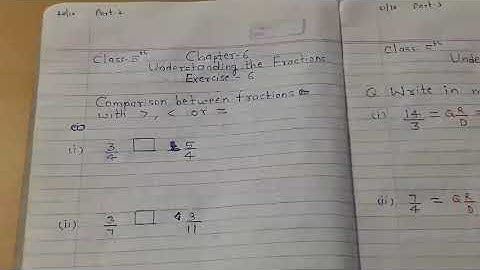 20/10 Part-2
Class-5th Chapter-6
Understanding the Fractions
Exercise-6
Comparison between fractions
with >, < or =
(i) 3/4 □ 5/4
(ii) 3/7 □ 3/11
21/10 Part-3
Class-5th
Unde
Q. Write in m
(i) 14/3 = Q R/D =
(ii) 7/4 = Q R/D